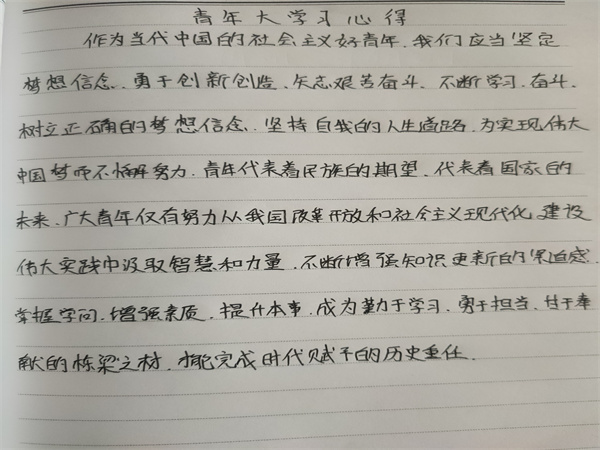 青年大学习心得
作为当代中国的社会主义好青年，我们应当坚定
梦想信念、勇于创新创造、矢志艰苦奋斗、不断学习、奋斗、
树立正确的梦想信念、坚持自我的人生道路，为实现伟大
中国梦而不懈努力，青年代表着民族的期望，代表着国家的
未来，广大青年仅有努力从我国改革开放和社会主义现代化建设
伟大实践中汲取智慧和力量，不断增强知识更新的紧迫感，
掌握学问，增强素质，提升本事，成为勤于学习、勇于担当、甘于奉
献的栋梁之材，才能完成时代赋予的历史重任．